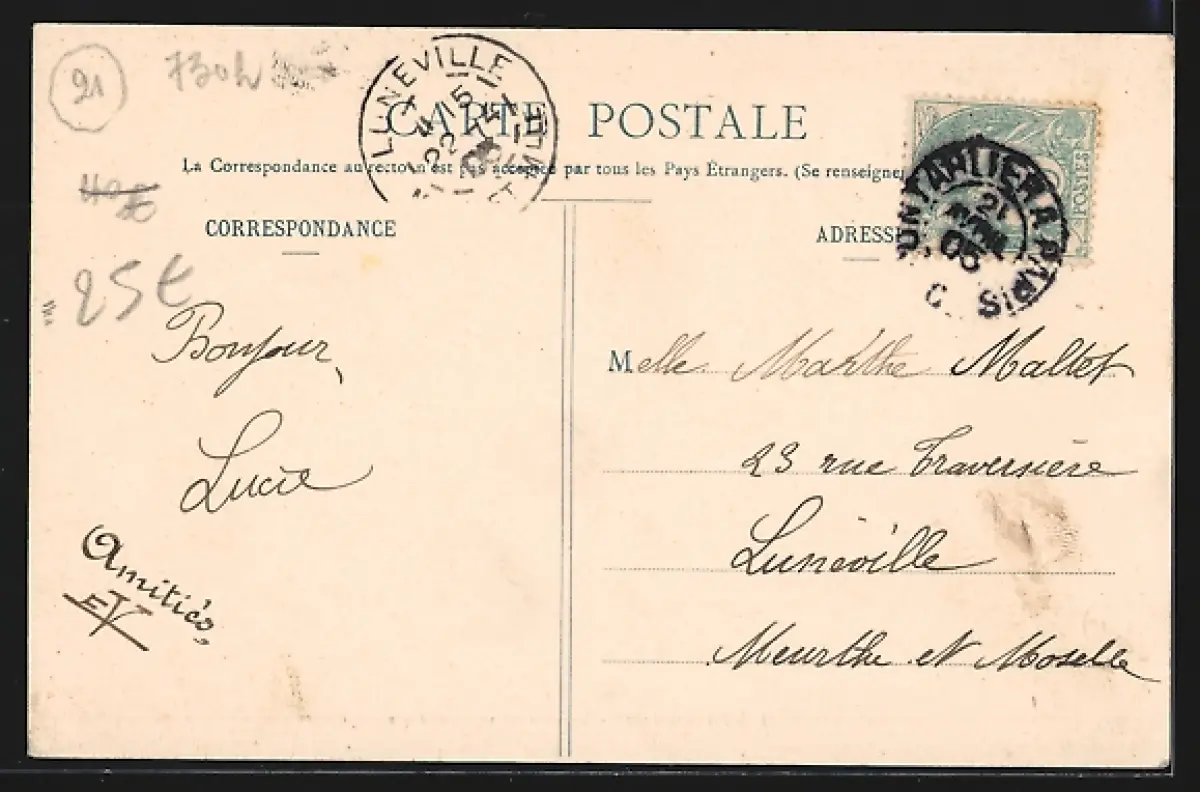 21
730h
LUNÉVILLE
4 15
22
05
CARTE POSTALE
La Correspondance au recto n'est pas acceptée par tous les Pays Étrangers. (Se renseigner
POSTES
PONTARLIER A PARIS
21
05
C
CORRESPONDANCE
ADRESSE
25€
Bonjour,
Lucie
Amitiés
EV
Melle Marthe Mallet
23 rue Traversière
Lunéville
Meurthe et Moselle